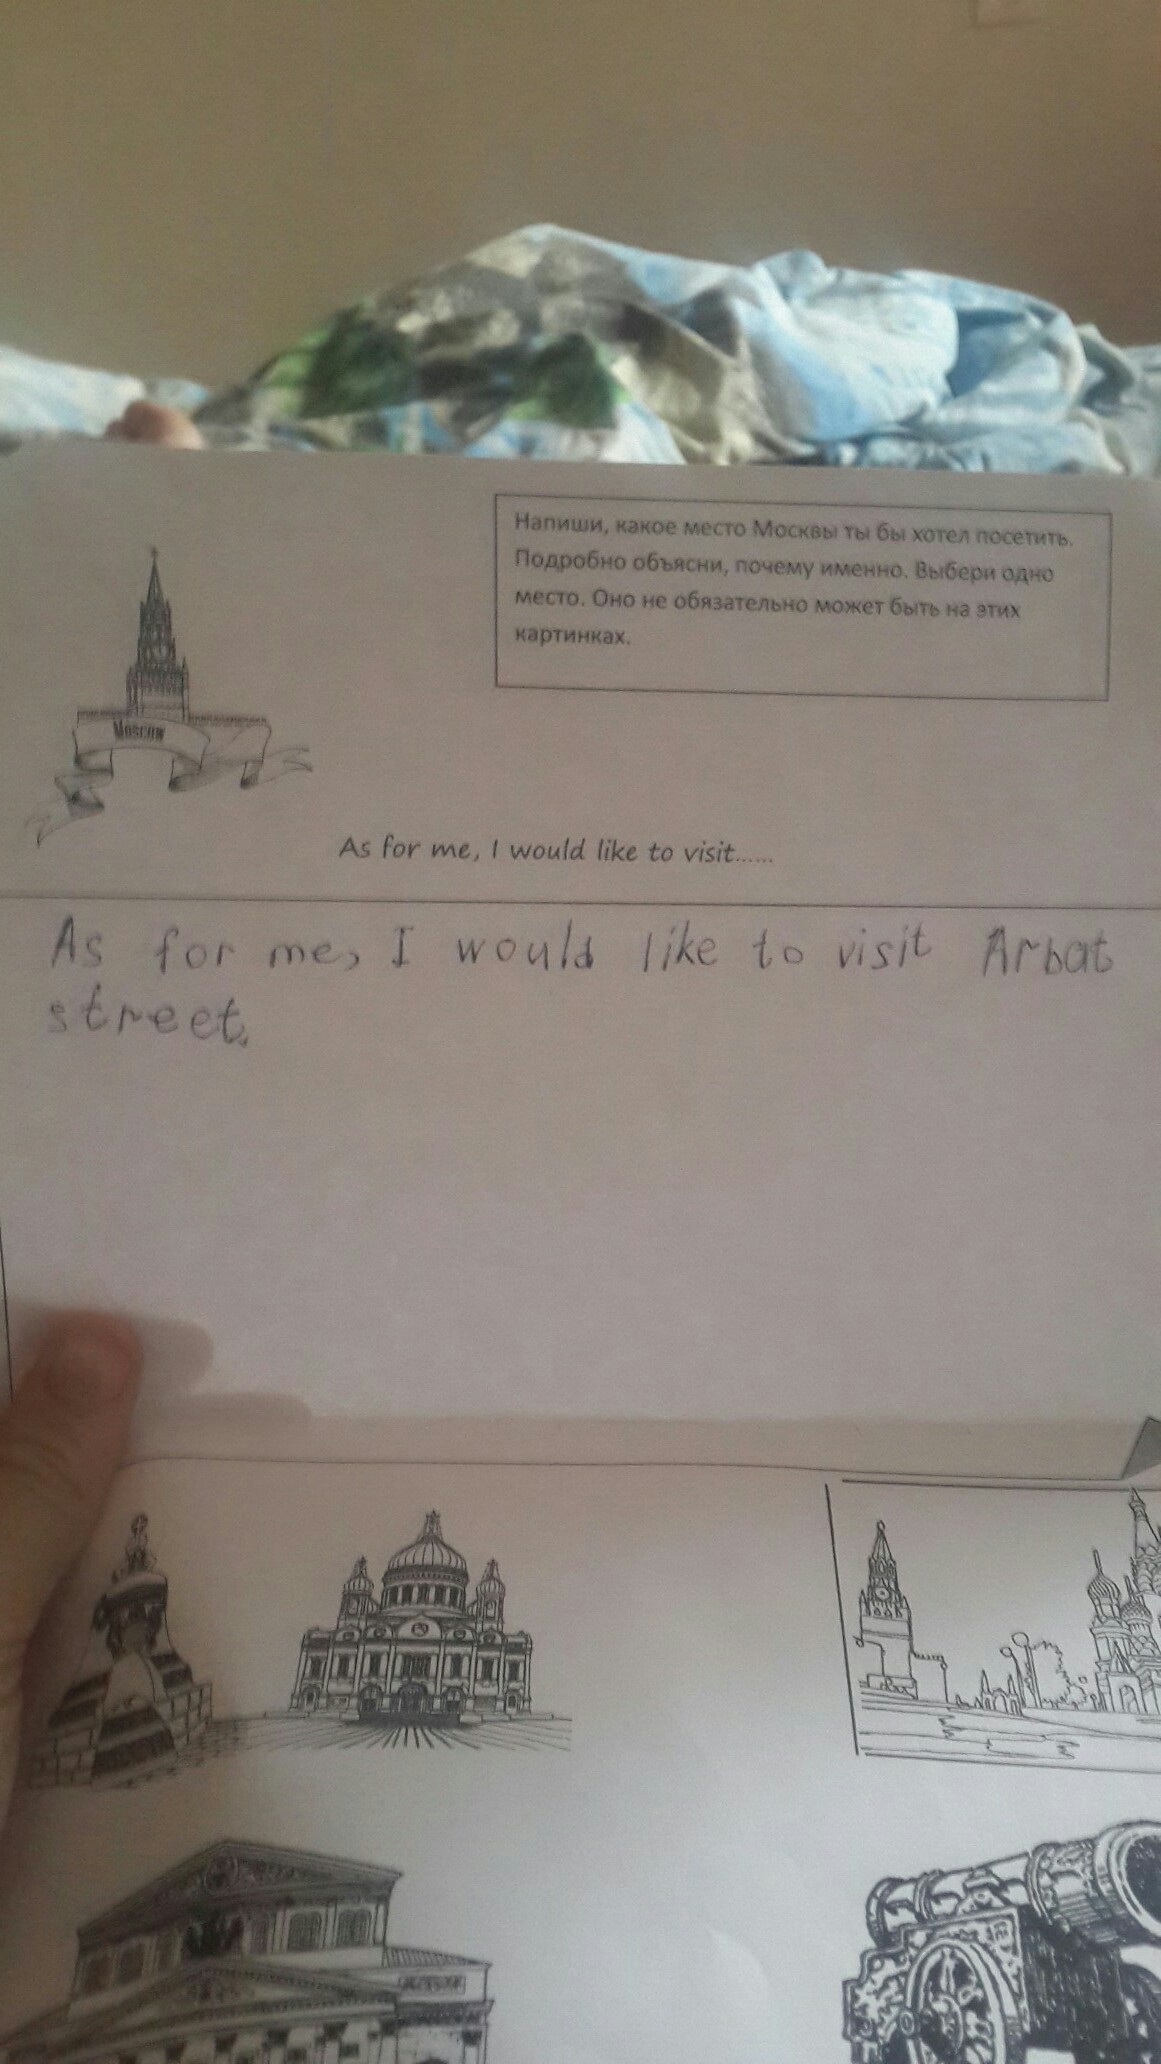 Напиши, какое место Москвы ты бы хотел посетить.
Подробно объясни, почему именно. Выбери одно
место. Оно не обязательно может быть на этих
картинках.
Moscow
As for me, I would like to visit......
As for me, I would like to visit Arbat
street.